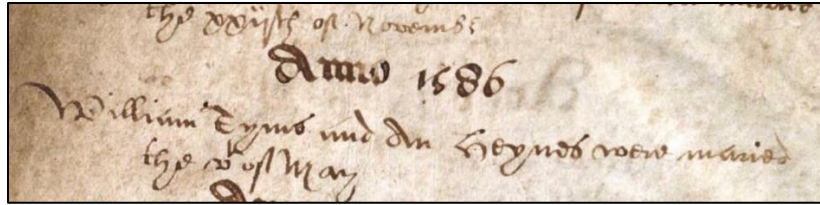 the xxiijth of Novembr
Anno 1586
William Tyms and An Heynes were maried
the xth of May